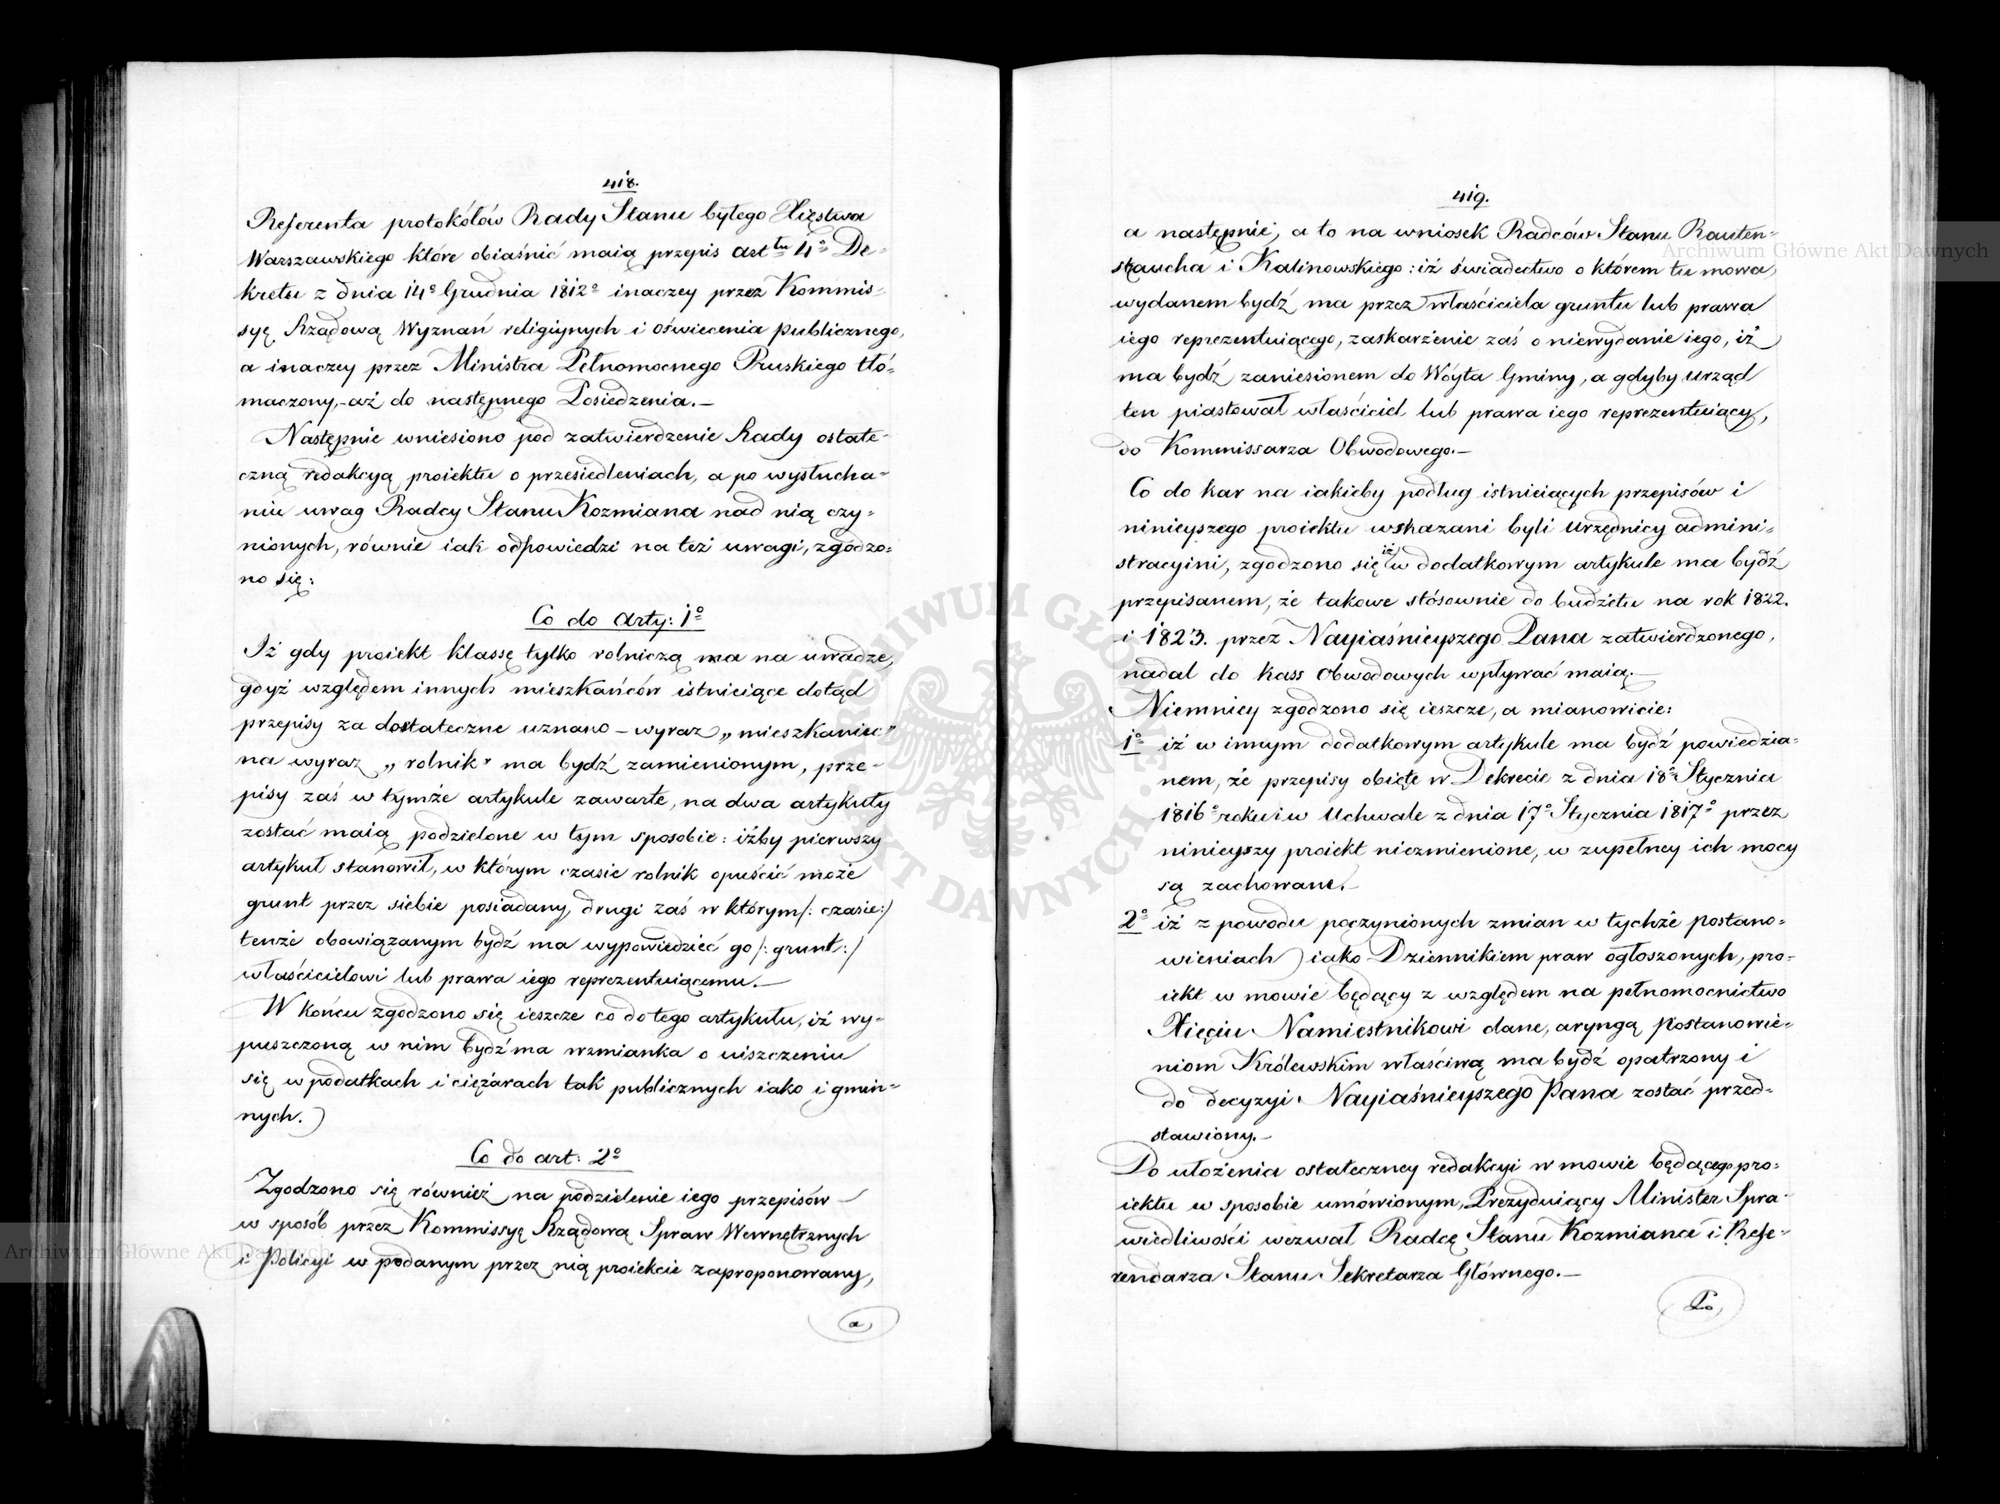 418.
Referenta protokółów Rady Stanu byłego Xięstwa
Warszawskiego które obiaśnić maią przepis art tu 4º De-
kretu z dnia 14º Grudnia 1812º inaczey przez Kommis-
syę Rządową Wyznań religiynych i oświecenia publicznego,
a inaczey przez Ministra Pełnomocnego Pruskiego tłó-
maczony,-aż do następnego Posiedzenia.-
Następnie wniesiono pod zatwierdzenie Rady ostate-
czną redakcyą proiektu o przesiedleniach, a po wysłucha-
niu uwag Radcy Stanu Kozmiana nad nią czy-
nionych, równie iak odpowiedzi na też uwagi, zgodzo-
no się:
Co do arty: 1º
Iż gdy proiekt klassę tylko rolniczą ma na uwadze,
gdyż względem innych mieszkańców istnieiące dotąd
przepisy za dostateczne uznano - wyraz „mieszkaniec"
na wyraz „rolnik" ma bydź zamienionym, prze-
pisy zaś w tymże artykule zawarte, na dwa artykuły
zostać maią podzielone w tym sposobie: iżby pierwszy
artykuł stanowił, w którym czasie rolnik opuścić może
grunt przez siebie posiadany, drugi zaś w którym /: czasie:/
tenże obowiązanym bydź ma wypowiedzieć go /: grunt:/
właścicielowi lub prawa iego reprezentuiącemu.-
W końcu zgodzono się ieszcze co do tego artykułu, iż wy-
puszczoną w nim bydź ma wzmianka o uiszczeniu
się w podatkach i ciężarach tak publicznych iako i gmin-
nych.
Co do art: 2º
Zgodzono się również na podzielenie iego przepisów
w sposób przez Kommissyę Rządową Spraw Wewnętrznych
i Policyi w podanym przez nią proiekcie zaproponowany,
a
419.
a następnie, a to na wniosek Radców Stanu Rauten-
straucha i Kalinowskiego: iż świadectwo o którem tu mowa,
wydanem bydź ma przez właściciela gruntu lub prawa
iego reprezentuiącego, zaskarżenie zaś o niewydanie iego, iż
ma bydź zaniesionem do Wóyta Gminy, a gdyby urząd
ten piastował właściciel lub prawa iego reprezentuiący,
do Kommissarza Obwodowego.-
Co do kar na iakieby podług istnieiących przepisów i
ninieyszego proiektu wskazani byli Urzędnicy admini-
stracyini, zgodzono się iż w dodatkowym artykule ma bydź
przepisanem, że takowe stósownie do budżetu na rok 1822.
i 1823. przez Nayiaśnieyszego Pana zatwierdzonego,
nadal do kass Obwodowych wpływać maią.-
Niemniey zgodzono się ieszcze, a mianowicie:
1º iż w innym dodatkowym artykule ma bydź powiedzia-
nem, że przepisy obięte w Dekrecie z dnia 18º Stycznia
1816º roku i w Uchwale z dnia 17º Stycznia 1817º przez
ninieyszy proiekt niezmienione, w zupełney ich mocy
są zachowane.-
2º iż z powodu poczynionych zmian w tychże postano-
wieniach iako Dziennikiem praw ogłoszonych, pro-
iekt w mowie będący z względem na pełnomocnictwo
Xięciu Namiestnikowi dane, aryngą Postanowie-
niom Królewskim właściwą ma bydź opatrzony i
do decyzyi Nayiaśnieyszego Pana zostać przed-
stawiony.-
Do ułożenia ostateczney redakcyi w mowie będącego pro-
iektu w sposobie umówionym, Prezyduiący Minister Spra-
wiedliwości wezwał Radcę Stanu Kozmiana i Refe-
rendarza Stanu Sekretarza Głównego.-
Po
Archiwum Główne Akt Dawnych
Archiwum Główne Akt Dawnych
ARCHIWUM GŁÓWNE AKT DAWNYCH